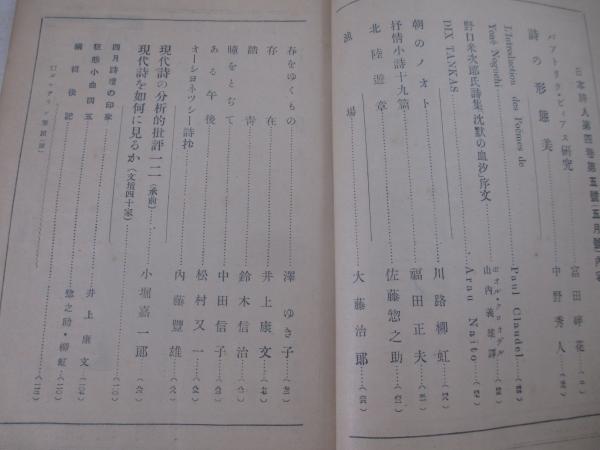 日本詩人第四卷第五號(五月號)內容
パアトリク・ピィアス硏究……富田碎花…(二)
詩の形態美……中野秀人…
L'Introduction des Poèmes de Yoné Noguchi……Paul Claudel…
野口米次郎氏詩集『沈默の血汐』序文……ポオル・クロオデル 山內義雄譯…
DIX TANKAS……Arau Naito…
朝のノオト……川路柳虹…
抒情小詩十九篇……福田正夫…
北陸遊章……佐藤惣之助…
波場……大藤治郞…
春をゆくもの……澤ゆき子…
存在……井上康文…
踏靑……鈴木信治…
瞳をとぢて……中田信子…
ある午後……松村又一…
オーシヨネツシー詩抄……內藤豐雄…
現代詩の分析的批評一二(承前)……小堀嘉一郞…
現代詩を如何に見るか(文壇四十家)
四月詩壇の印象……(一〇)
狂態小曲四五……井上康文…(一〇四)
編輯後記……惣之助・柳虹…(一一〇)